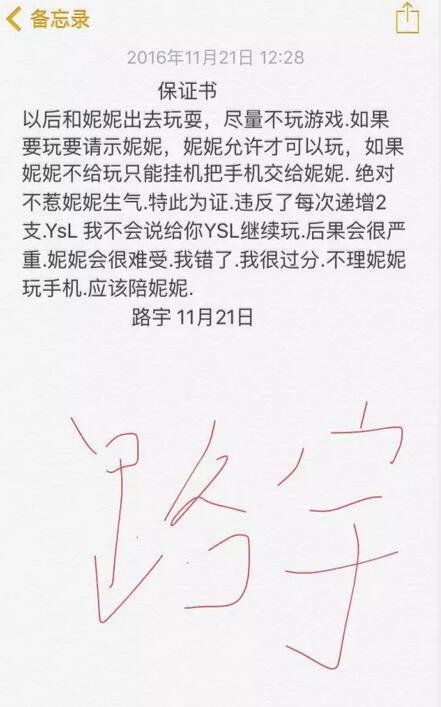 备忘录
2016年11月21日 12:28
保证书
以后和妮妮出去玩耍，尽量不玩游戏.如果
要玩要请示妮妮，妮妮允许才可以玩，如果
妮妮不给玩只能挂机把手机交给妮妮. 绝对
不惹妮妮生气.特此为证.违反了每次递增2
支.YsL 我不会说给你YSL继续玩.后果会很严
重.妮妮会很难受.我错了.我很过分.不理妮妮
玩手机.应该陪妮妮.
路宇 11月21日
路宇